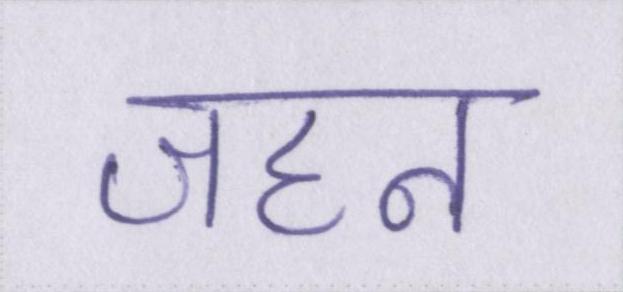 जहन